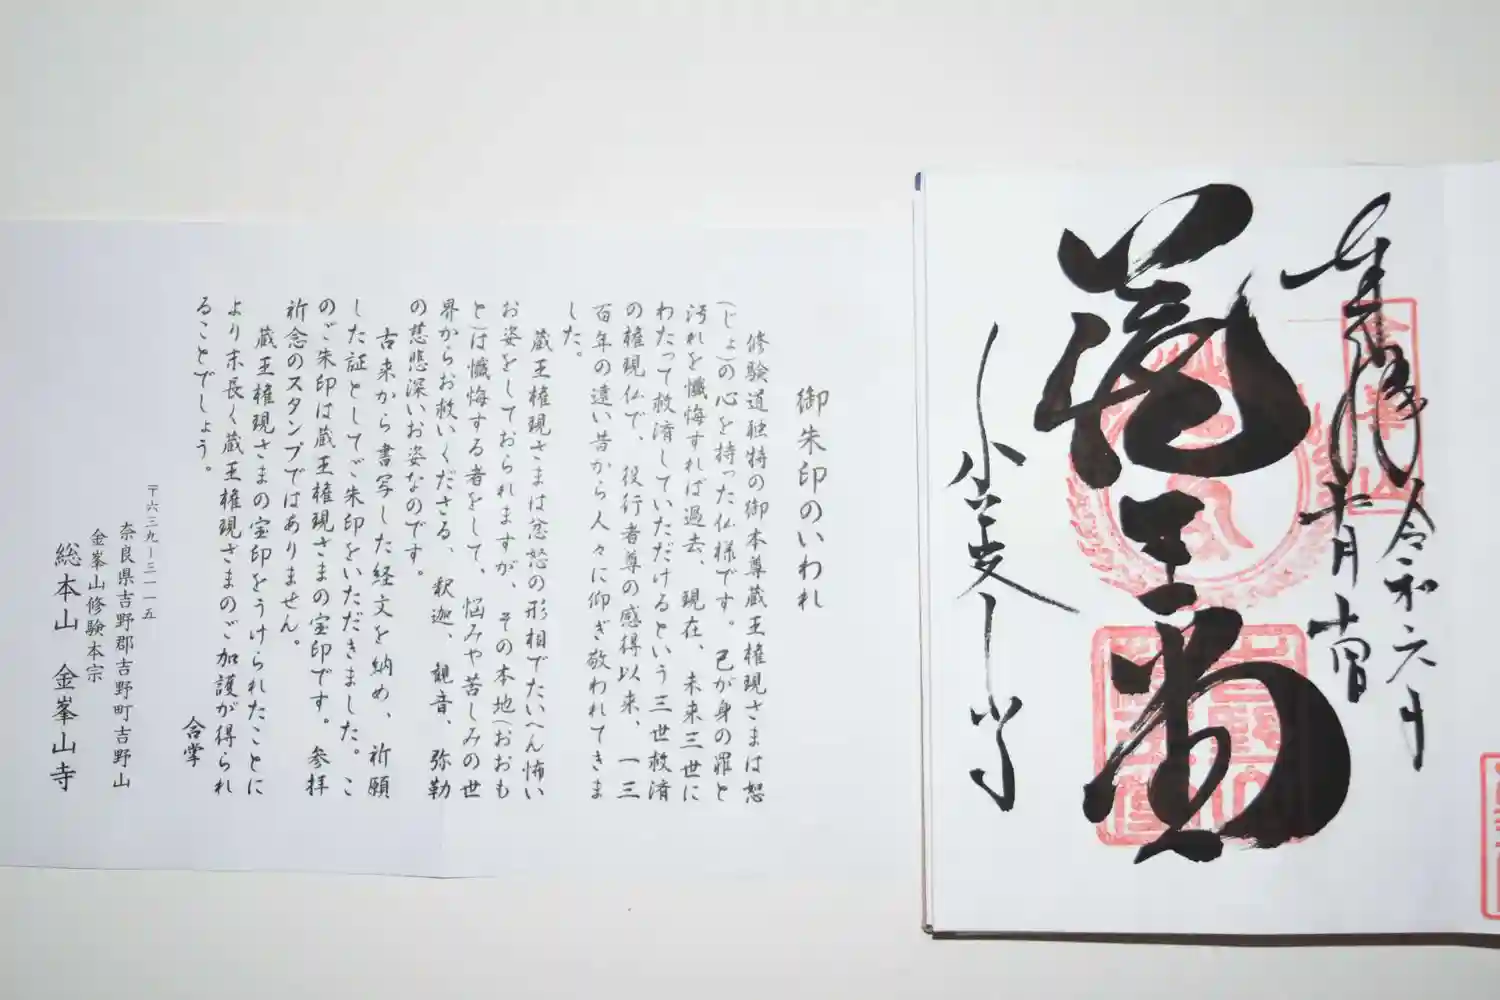 奉拝
令和六年
七月廿一日
蔵王堂
金峯山寺
御朱印のいわれ
修験道独特の御本尊蔵王権現さまは恕
(じょ)の心を持った仏様です。己が身の罪と
汚れを懺悔すれば過去、現在、未来三世に
わたって救済していただけるという三世救済
の権現仏で、役行者尊の感得以来、一三
百年の遠い昔から人々に仰ぎ敬われてきま
した。
蔵王権現さまは忿怒の形相でたいへん怖い
お姿をしておられますが、その本地(おおも
と)は懺悔する者をして、悩みや苦しみの世
界からお救いくださる、釈迦、観音、弥勒
の慈悲深いお姿なのです。
古来から書写した経文を納め、祈願
した証としてご朱印をいただきました。こ
のご朱印は蔵王権現さまの宝印です。参拝
祈念のスタンプではありません。
蔵王権現さまの宝印をうけられたことに
より末長く蔵王権現さまのご加護が得られ
ることでしょう。
合掌
〒六三九ー三一一五
奈良県吉野郡吉野町吉野山
金峯山修験本宗
総本山 金峯山寺